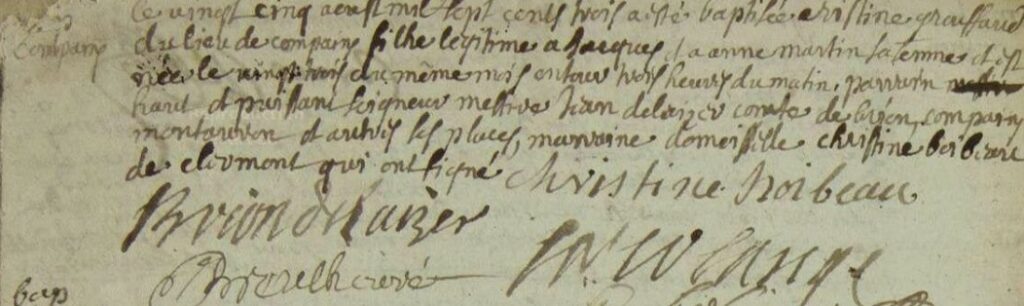 le vingt cinq aoust mil sept cents trois a esté baptisée cristine
Compains du lieu de compains filhe legitime a Jacques, et a anne martin sa femme et est
née le vingt trois du même mois entour trois heures du matin, parrain
haut et puissant seigneur messire Jean delaizer comte de brion, compains
montauron et autres ses places, marraine domoiselle christine boibeau
de clermont qui ont signé Christine Boibeau
Brion de laizer
curé
bap